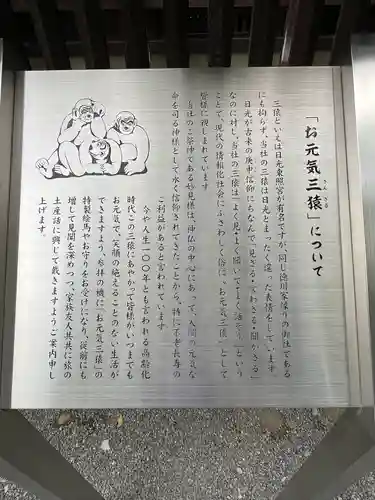 「お元気三猿」について
さん ざる
三猿といえば日光東照宮が有名ですが、同じ徳川家縁りの御社である
にも拘らず、当社の三猿は日光とまったく違った表情をしています
日光が古来の庚申信仰にちなんで「見ざる・言わざる・聞かざる」
なのに対し、当社の三猿は「よく見・よく聞いて・よく話そう」という
ことで、現代の情報化社会にふさわしく俗に「お元気三猿」として
皆様に親しまれています
当社のご祭神である妙見様は、神仏の中心にあって、人間の元気な
命を司る神様として永く信仰されてきたことから、特に不老長寿の
ご利益があると言われています
今や人生一〇〇年とも言われる高齢化
時代この三猿にあやかって皆様がいつまでも
お元気で、笑顔の絶えることのない生活が
できますよう、参拝の機に「お元気三猿」の
特製絵馬やお守りをお受けになり、従前にも
増して見聞を深めつつ、家族友人共共に旅の
土産話に興じて戴きますようご案内申し
上げます。